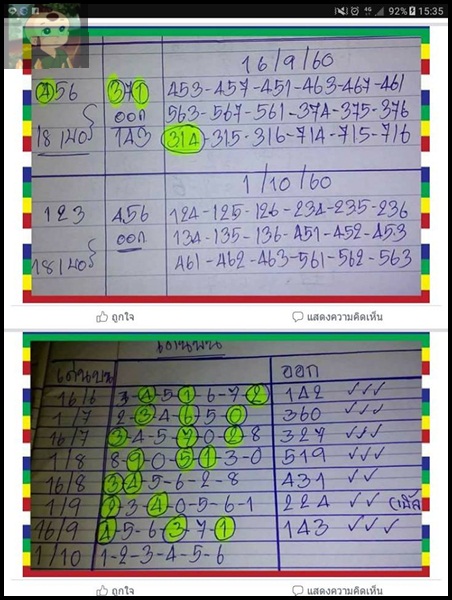 92% 15:35
16/9/60
456 371 453-457-451-463-467-461
ออก 563-567-561-374-375-376
18 เบอร์ 143 314-315-316-714-715-716
1/10/60
123 456 124-125-126-234-235-236
ออก 134-135-136-451-452-453
18 เบอร์ 461-462-463-561-562-563
ถูกใจ แสดงความคิดเห็น
เด่นบน ออก
16/6 3-4-5-1-6-7-2 142
1/7 2-3-4-6-5-0 360
16/7 3-4-5-7-0-2-8 327
1/8 8-9-0-5-1-3-0 519
16/8 3-4-5-6-2-8 431
1/9 2-3-4-0-5-6-1 224
16/9 4-5-6-3-7-1 143
1/10 1-2-3-4-5-6
ถูกใจ แสดงความคิดเห็น